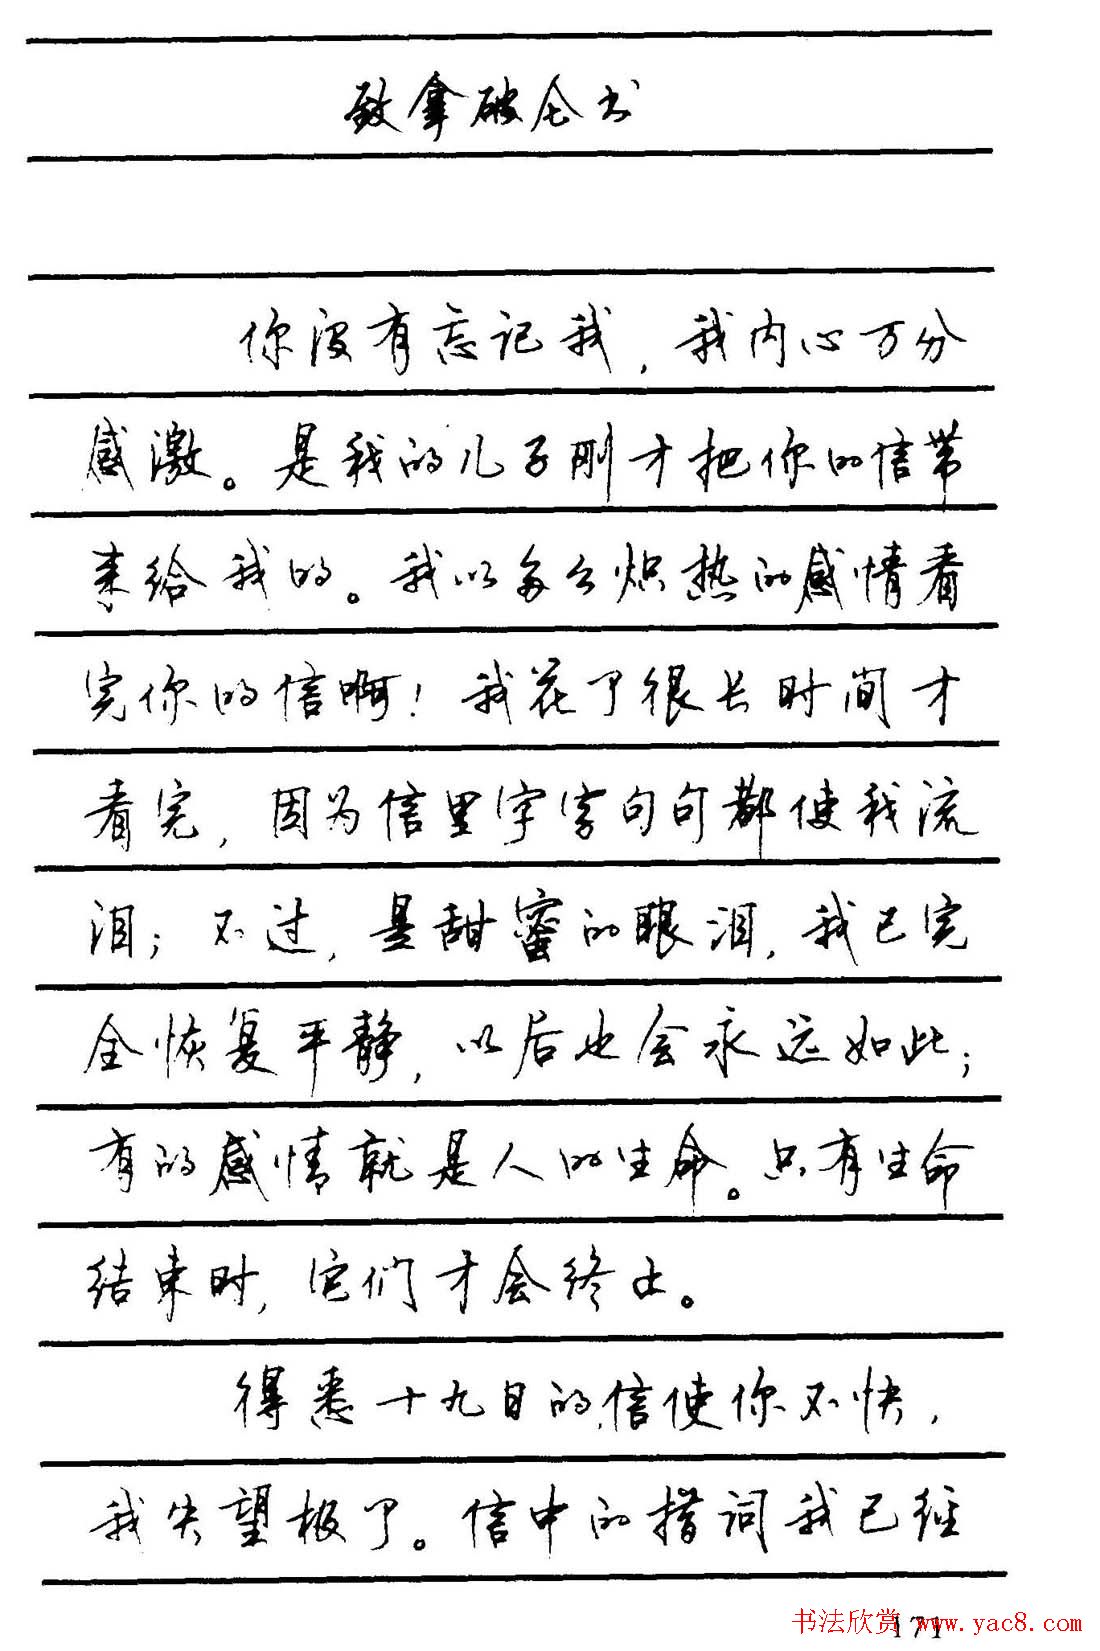 致拿破仑书
你没有忘记我，我内心万分
感激。是我的儿子刚才把你的信带
来给我的。我以多么炽热的感情看
完你的信啊！我花了很长时间才
看完，因为信里字字句句都使我流
泪；不过，是甜蜜的眼泪，我已完
全恢复平静，以后也会永远如此；
有的感情就是人的生命。只有生命
结束时，它们才会终止。
得悉十九日的信使你不快，
我失望极了。信中的措词我已经
书法欣赏 www.yac8.com
171